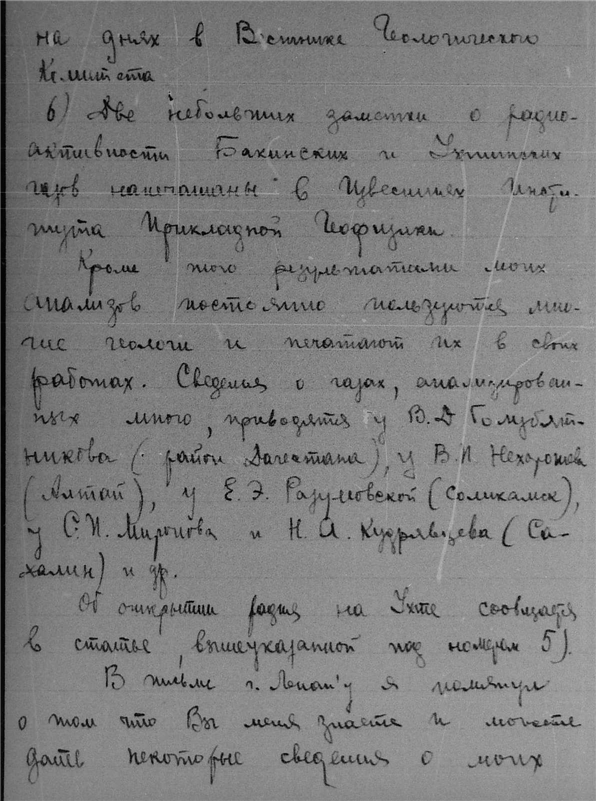 на днях в Вестнике Геологического
Комитета
6) Две небольших заметки о радио-
активности Бакинских и Ухтинских
газов напечатаны в Известиях Инсти-
тута Прикладной Геофизики.
Кроме того результатами моих
анализов постоянно пользуются мно-
гие геологи и печатают их в своих
работах. Сведения о газах, анализирован-
ных мною, приводятся у В.Д Голубят-
никова (район Дагестана), у В.П. Нехорошева
(Алтай), у Е.Э. Разумовской (Соликамск),
у С.И. Миронова и Н.А. Кудрявцева (Са-
халин) и др.
Об открытии радия на Ухте сообщается
в статье, вышеуказанной под номером 5).
В письме г. Лепап'у я помянул
о том что Вы меня знаете и можете
дать некоторые сведения о моих